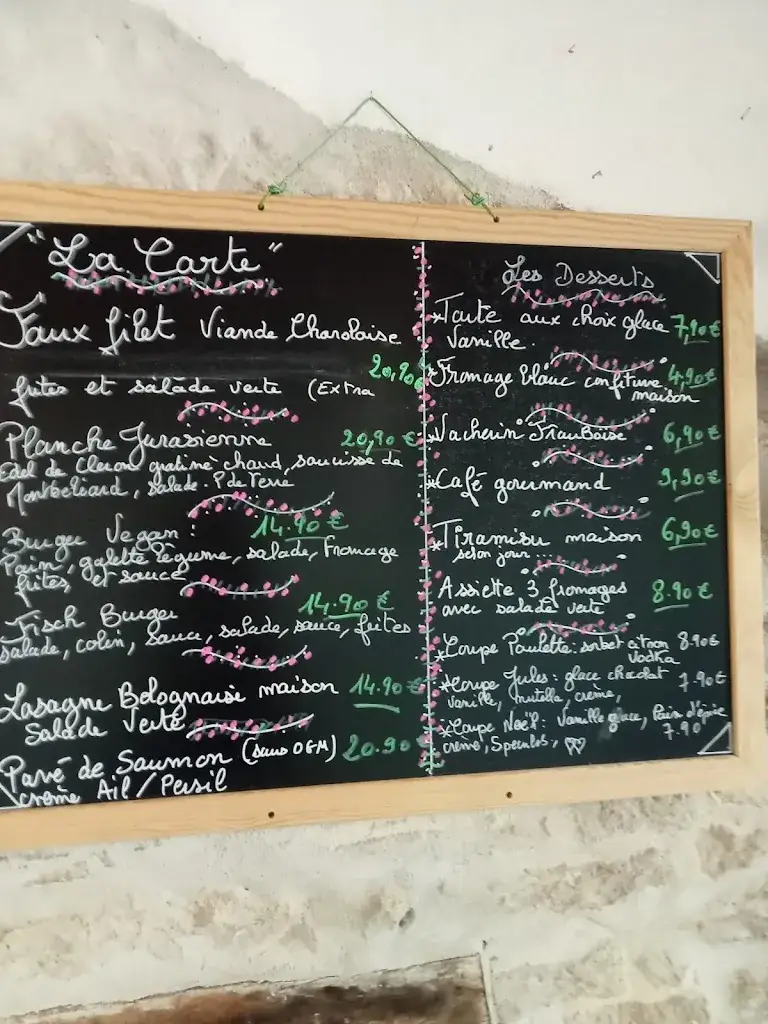 "La Carte"
Faux filet Viande Charolaise
20,90€
frites et salade verte (Extra
Planche Jurasienne 20,90€
Edel de Cleron gratiné chaud, saucisse de
Montbéliard, salade. P de Terre
Burger Vegan : 14.90€
Pain, galette légume, salade, Fromage
frites, et sauce
Fisch Burger 14.90€
salade, colin, sauce, salade, sauce, frites
Lasagne Bolognaise maison 14.90€
Salade Verte
Pavé de Saumon (sans OGM) 20.90€
crème Ail / Persil
Les Desserts
*Tarte aux choix glace 7,90€
Vanille.
*Fromage blanc confiture 4,90€
maison
*Vacherin Framboise 6,90€
*Café gourmand 9,90€
*Tiramisu maison 6,90€
selon jour...
Assiette 3 fromages 8.90€
avec salade verte
*Coupe Poulette: sorbet citron 8.90€
Vodka
*Coupe Jules: glace chocolat 7.90€
Vanille, nutella, creme,
*Coupe Noël: Vanille glace, Pain d'épice
crème, Speculos, 7.90